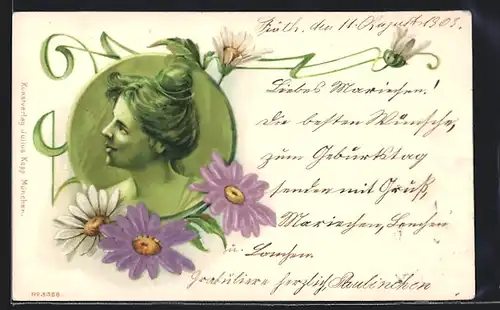 Fürth, den 11. August 1903.
Liebes Mariechen!
Die besten Wünsche,
zum Geburtstag
senden mit Gruß,
Mariechen, Lenchen
u.
Gratuliere herzlich, Paulinchen
Kunstverlag Julius Kopp München.